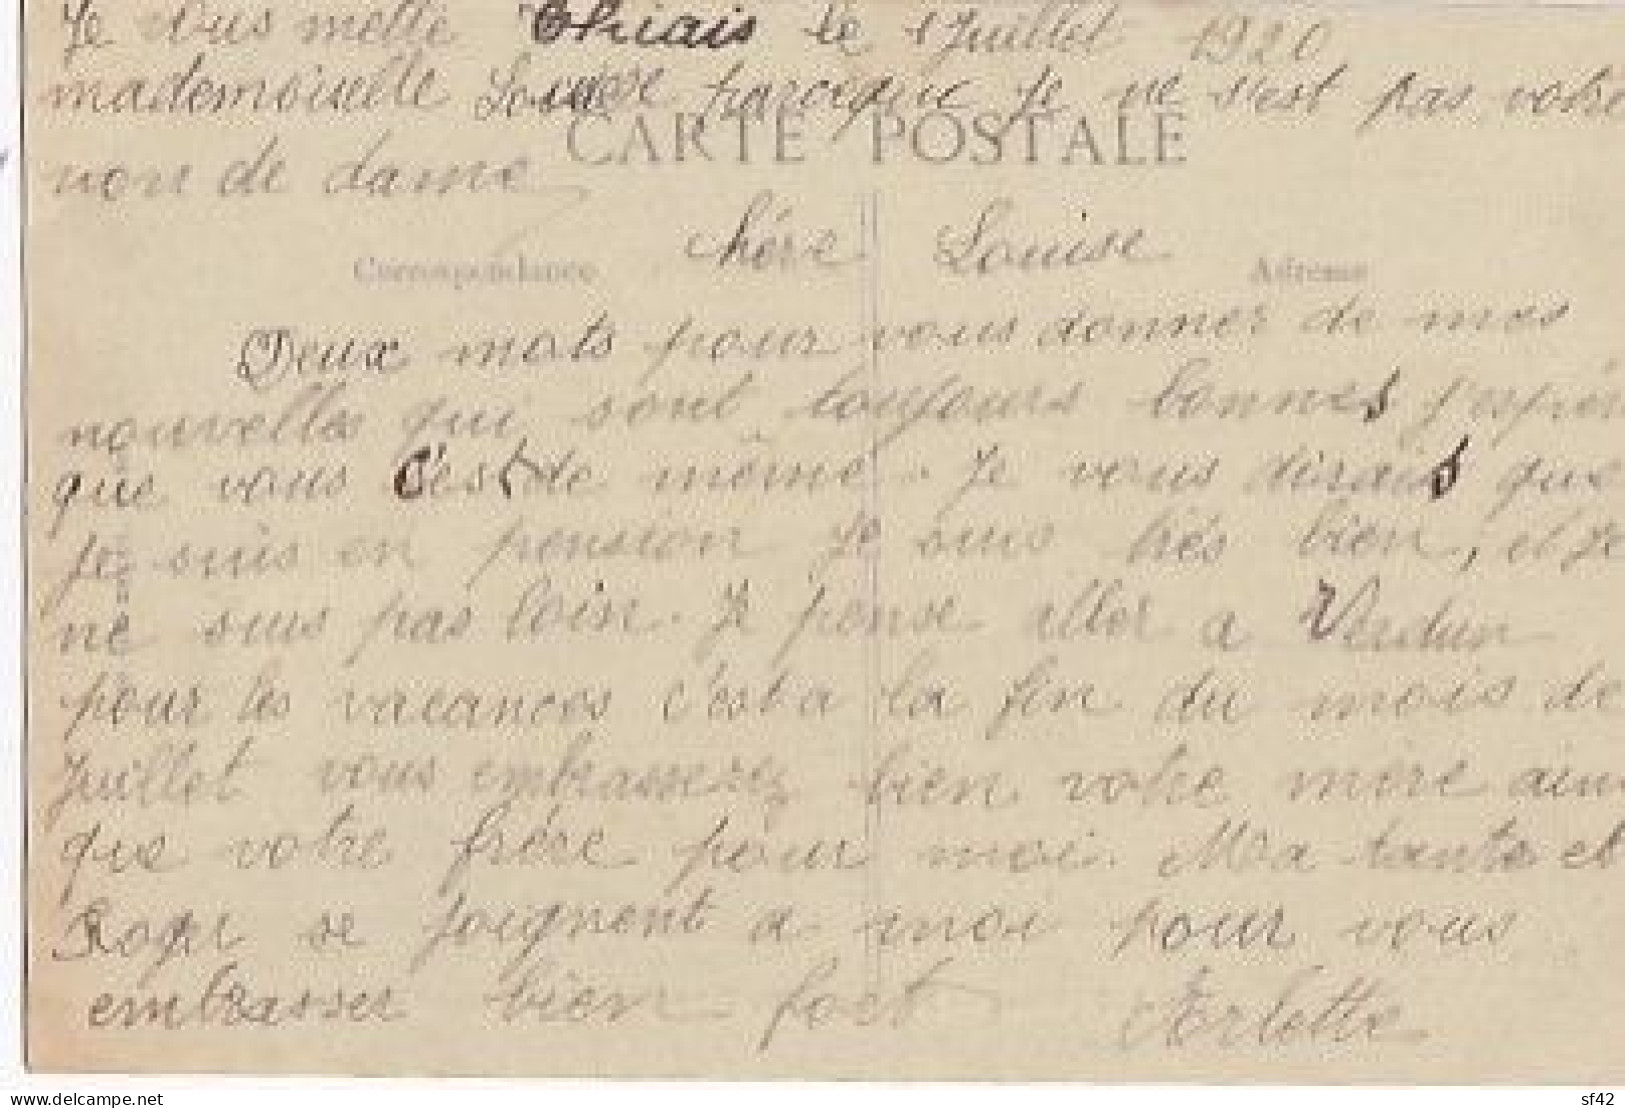 Je vous mette Thiais le 1 Juillet 1920
mademoiselle Louise parceque Je ne s'est pas votre
non de dame
CARTE POSTALE
Correspondance chére Louise Adresse
Deux mots pour vous donner de mes
nouvelles qui sont toujours bonnes J'espére
que vous c'est de même. Je vous dirais que
Je suis en pension Je suis trés bien, et Je
ne suis pas loin. Je pense aller a Verdun
pour les vacances c'est a la fin du mois de
Juillet vous embrasserez bien votre mère ainsi
que votre frére pour moi. Ma tante et
Roger se joignent a moi pour vous
embrasser bien fort Arlette
Delcampe.net sf42